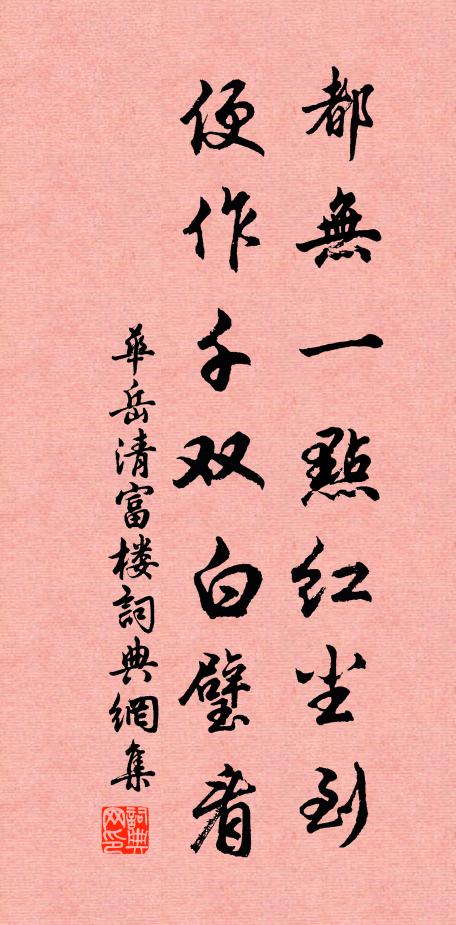 都無一點红尘到
便作千双白璧看
華岳清富楼詞典網集
詞典
网印